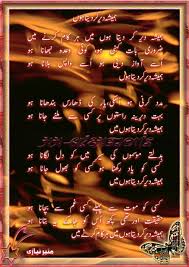 ہمیشہ دیر کر دیتا ہوں
ہمیشہ دیر کر دیتا ہوں میں ہر کام کرنے میں
ضروری بات کہنی ہو کوئی وعدہ نبھانا ہو
اسے آواز دینی ہو اسے واپس بلانا ہو
ہمیشہ دیر کر دیتا ہوں
مدد کرنی ہو اسکی یار کی ڈھارس بندھانا ہو
بہت دیرینہ راستوں پر کسی سے ملنے جانا ہو
ہمیشہ دیر کر دیتا ہوں
بدلتے موسموں کی سیر میں دل کو لگانا ہو
کسی کو یاد رکھنا ہو کسی کو بھول جانا ہو
ہمیشہ دیر کر دیتا ہوں
کسی کو موت سے پہلے کسی غم سے بچانا ہو
حقیقت اور تھی کچھ اس کو جا کے یہ بتانا ہو
ہمیشہ دیر کر دیتا ہوں میں ہر کام کرنے میں
منیر نیازی